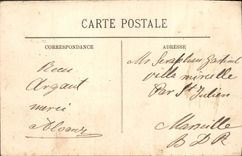 CARTE POSTALE
CORRESPONDANCE
ADRESSE
Reçu
Argent
merci
Mr Seraphin Gabriel
Villa Mireille
Par St Julien
Marseille
B D R